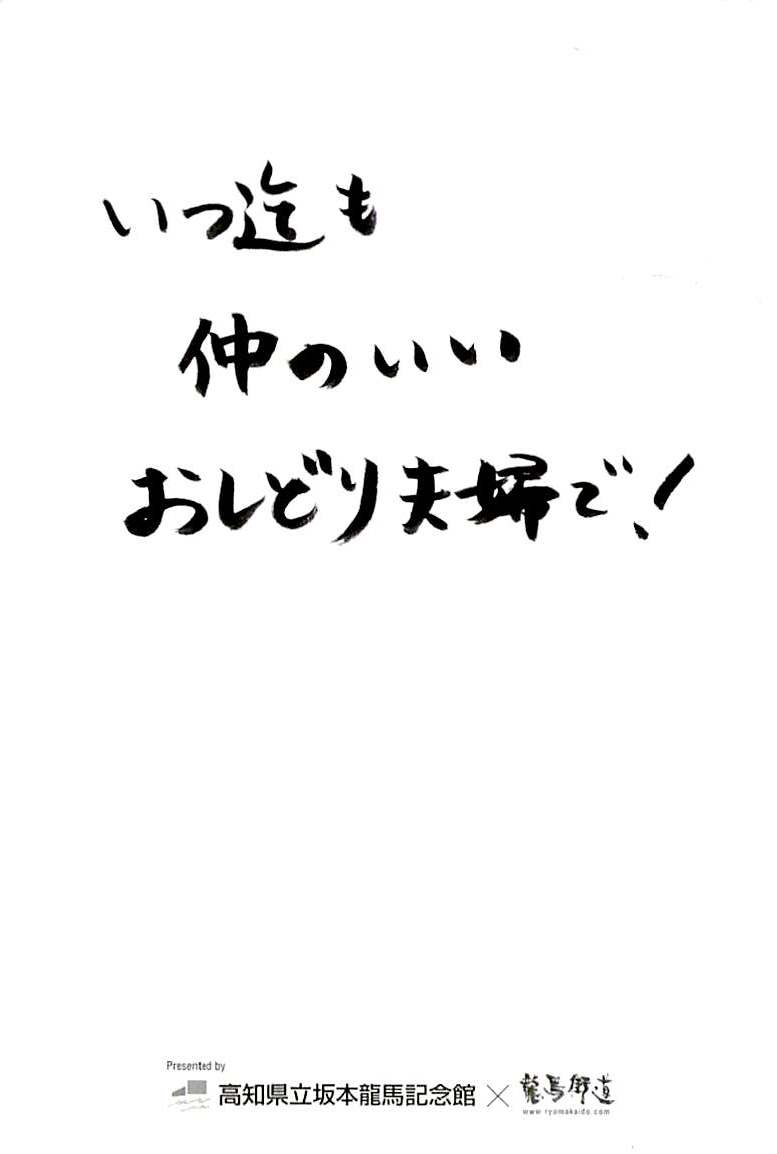 いつ迄も
仲のいい
おしどり夫婦で!
Presented by
高知県立坂本龍馬記念館×龍馬街道
www.ryomakaido.com